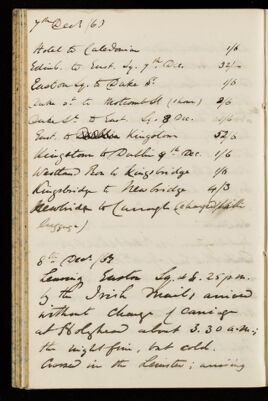 7th Decr (63)
Hotel to Caledonian 1/6
Edinb. to Eust. Sq. 7th Dec.
Euston Sq. to Duke St. 1/6
Duke St. to 2/6
Duke St. to Eust. Sq. 8 Dec. 1/6
Eust. to Kingston
Kingstown to Dublin 9th Dec. 1/6
Westland Row to Kingsbridge 1/6
Kingsbridge to Newbridge 4/3
Newbridge to Curragh (charged
luggage)
8th Decr. /63
Leaving Euston Sq. at 8.25 p.m.
by the Irish Mail, arrived
without change of carriage
at Holyhead about 3.30 a.m;
the night fine, but cold.
Crossed in the Leinster; arriving